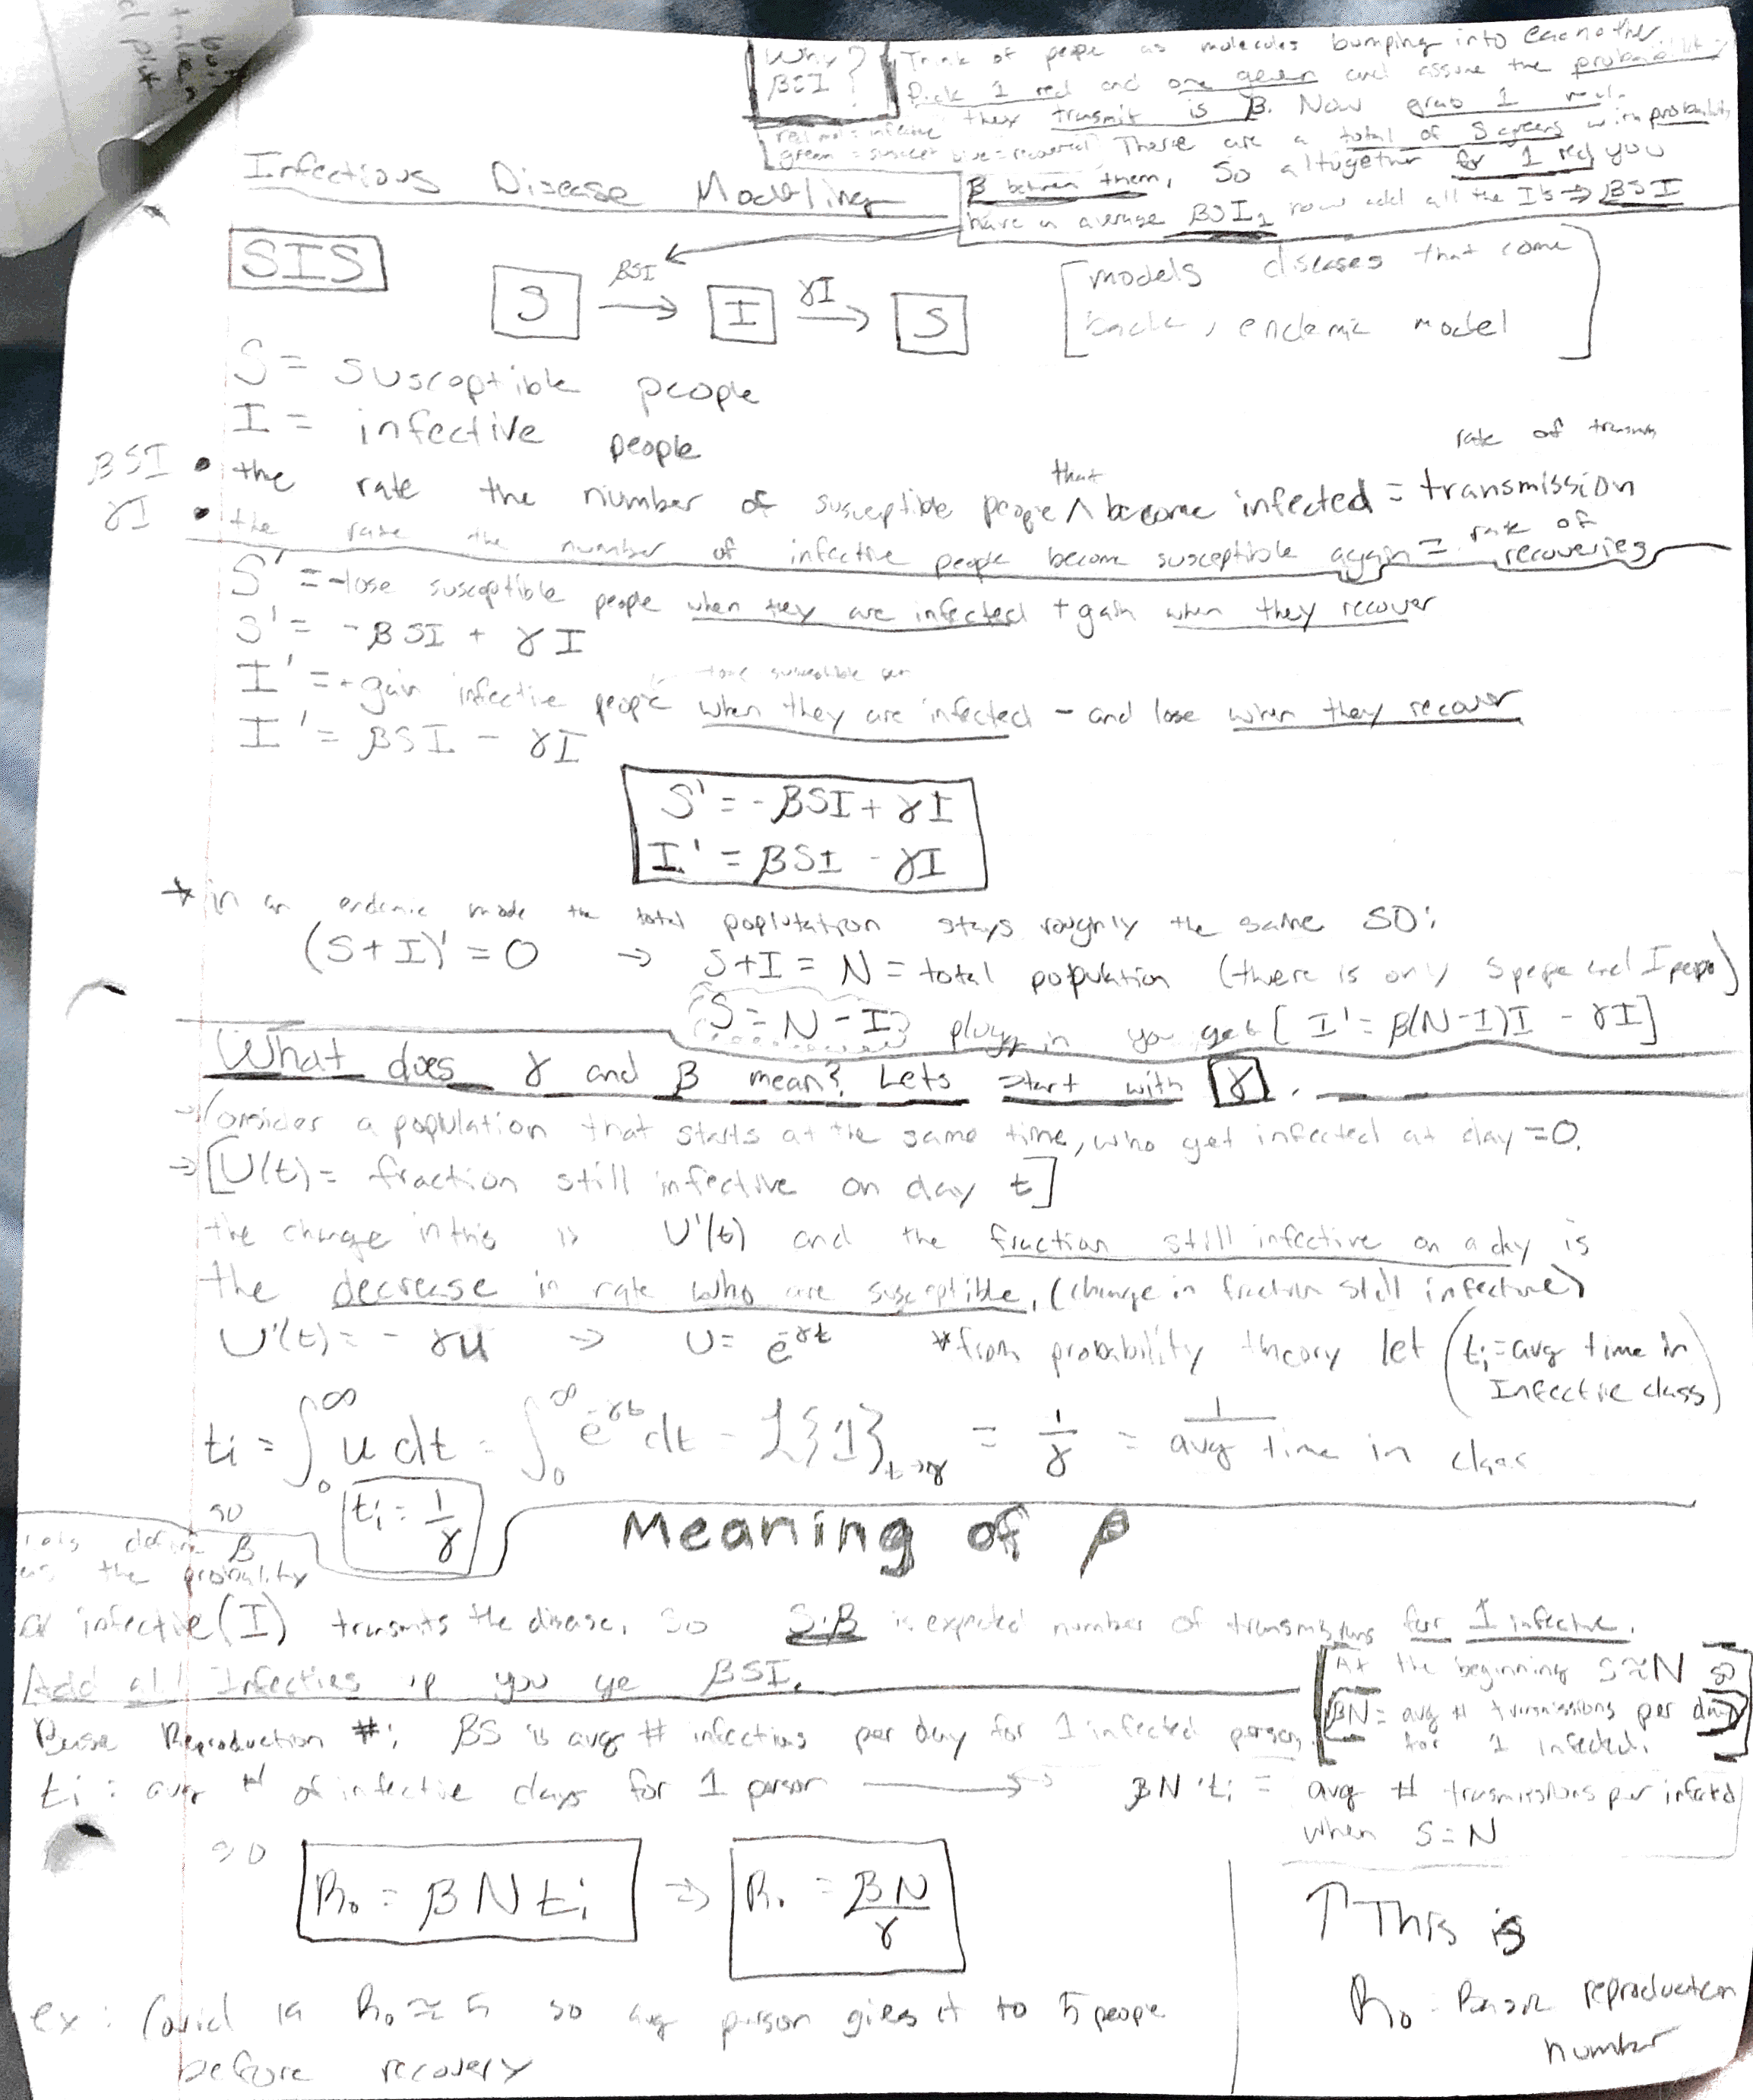 Why? BSI?
Think of people as molecules bumping into eachother
Pick 1 red and one green and assume the probability
they transmit is β. Now grab 1
red = infective
green = suscept blue = recovered There are a total of S greens with probability
β between them, So altogether for 1 red you
have a average βSI₁ now add all the I's → βSI
Infectious Disease Modeling
SIS
S βSI → I γI → S
[models diseases that come
back, endemic model]
S = susceptible people
I = infective people
rate of transm
βSI • the rate the number of susceptible people ^ that become infected = transmission
γI • the rate the number of infective people become susceptible again = rate of recoveries
S' = -lose susceptible people when they are infected + gain when they recover
S' = -βSI + γI
I' = + gain infective people when they are infected - and lose when they recover
I' = βSI - γI
S' = -βSI + γI
I' = βSI - γI
* in an endemic mode the total poplutation stays roughly the same SO:
(S+I)' = 0 → S+I = N = total population (there is only S pepe and I pepe)
{S = N - I} plugg in you get [I' = β(N-I)I - γI]
What does γ and β mean? Lets start with γ.
→ Consider a population that starts at the same time, who get infected at day = 0.
→ [U(t) = fraction still infective on day t]
the change in this is U'(t) and the fraction still infective on a day is
the decrease in rate who are susceptible, (change in fraction still infective)
U'(t) = - γu ⇒ U = e^-γt *from probability theory let (ti = avg time in
Infective class)
ti = ∫₀^∞ u dt = ∫₀^∞ e^-γt dt = L{1}t→γ = 1/γ = 1/avg time in class
so ti = 1/γ
Meaning of β
lets define β
as the probability
an infective (I) transmits the disease. So S·β is expected number of transmissions for 1 infective.
Add all Infecties up you ge βSI.
[At the beginning S≈N so
βN = avg # transmissions per day
for 1 infected.]
Base Reproduction #: βS is avg # infections per day for 1 infected person.
ti: avg # of infective days for 1 person → βN·ti = avg # transmissions per infected
when S = N
so R₀ = βNti ⇒ R₀ = βN/γ
↑ This is
R₀ = Basic reproduction
number
ex: Covid 19 R₀ ≈ 5 so avg person gives it to 5 people
before recovery